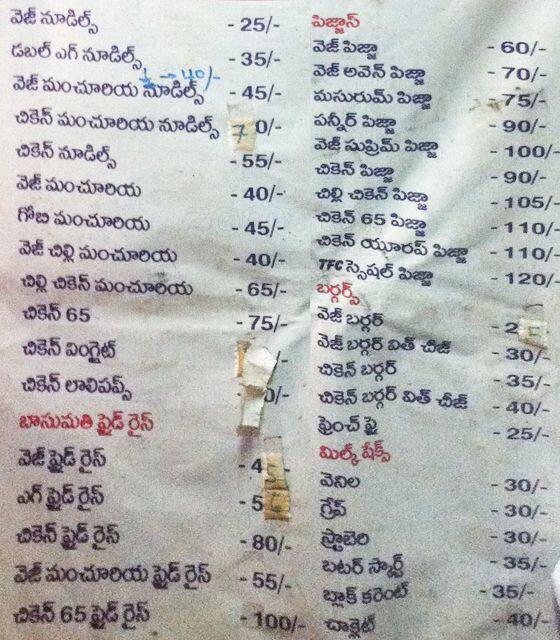 వెజ్ నూడిల్స్ - 25/-
డబల్ ఎగ్ నూడిల్స్ - 35/-
½ - 40/-
వెజ్ మంచూరియ నూడిల్స్ - 45/-
చికెన్ మంచూరియ నూడిల్స్ 70/-
చికెన్ నూడిల్స్ - 55/-
వెజ్ మంచూరియ - 40/-
గోబి మంచూరియ - 45/-
వెజ్ చిల్లి మంచూరియ - 40/-
చిల్లి చికెన్ మంచూరియ - 65/-
చికెన్ 65 - 75/-
చికెన్ వింగ్లైట్
చికెన్ లాలిపప్స్ 0/-
బాసుమతి ఫ్రైడ్ రైస్
వెజ్ ఫ్రైడ్ రైస్ - 4
ఎగ్ ఫ్రైడ్ రైస్ - 5
చికెన్ ఫ్రైడ్ రైస్ - 80/-
వెజ్ మంచూరియ ఫ్రైడ్ రైస్ - 55/-
చికెన్ 65 ఫ్రైడ్ రైస్ - 100/-
పిజ్జాస్
వెజ్ పిజ్జా - 60/-
వెజ్ అవెన్ పిజ్జా - 70/-
మసురుమ్ పిజ్జా - 75/-
పన్నీర్ పిజ్జా - 90/-
వెజ్ సుప్రిమ్ పిజ్జా - 100/-
చికెన్ పిజ్జా - 90/-
చిల్లి చికెన్ పిజ్జా - 105/-
చికెన్ 65 పిజ్జా - 110/-
చికెన్ యూరప్ పిజ్జా - 110/-
TFC స్పెషల్ పిజ్జా - 120/-
బర్గర్స్
వెజ్ బర్గర్ - 25
వెజ్ బర్గర్ విత్ చీజ్ - 30/-
చికెన్ బర్గర్ - 35/-
చికెన్ బర్గర్ విత్ చీజ్ - 40/-
ఫ్రెంచ్ ఫ్రై - 25/-
మిల్క్ షేక్స్
వెనిల - 30/-
గ్రేప్ - 30/-
స్ట్రాబెరి - 30/-
బటర్ స్కార్చ్ - 35/-
బ్లాక్ కరెంట్ - 35/-
చాక్లెట్ - 40/-